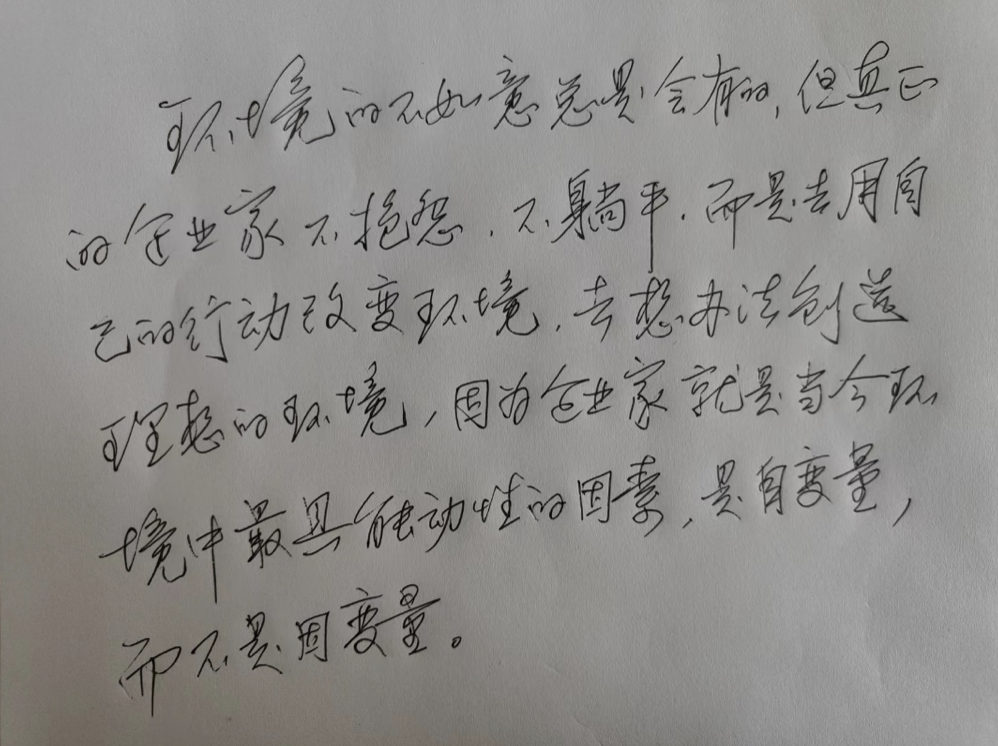 环境的不如意总是会有的,但真正
的企业家不抱怨,不躺平,而是去用自
己的行动改变环境,去想办法创造
理想的环境,因为企业家就是当今环
境中最具能动性的因素,是自变量,
而不是因变量。